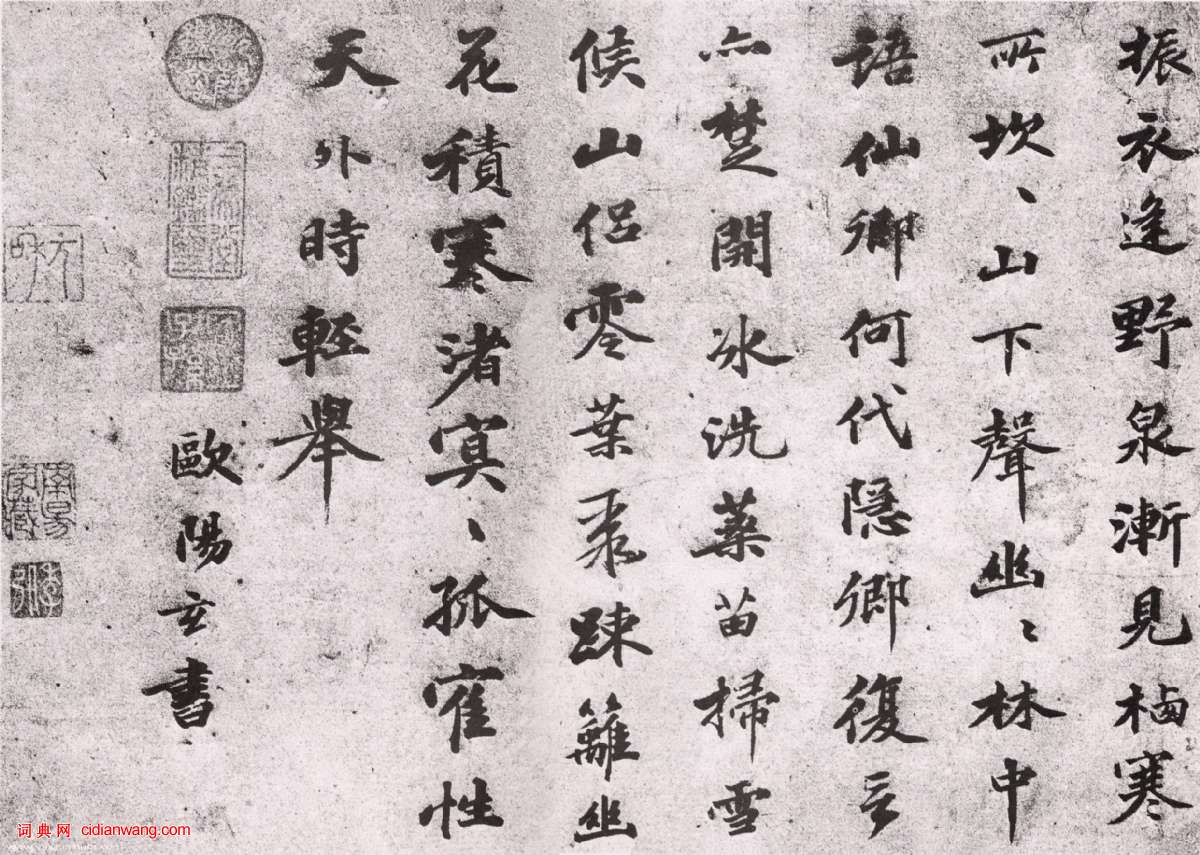 振衣逢野泉漸見栖寒
所坎、山下聲幽、林中
語仙卿何代隱卿復言
亦楚開冰洗藥苗掃雪
候山侶零葉聚踈籬幽
花積寒渚冥、孤寉性
天外時輕舉
歐陽玄書
词典网 cidianwang.com